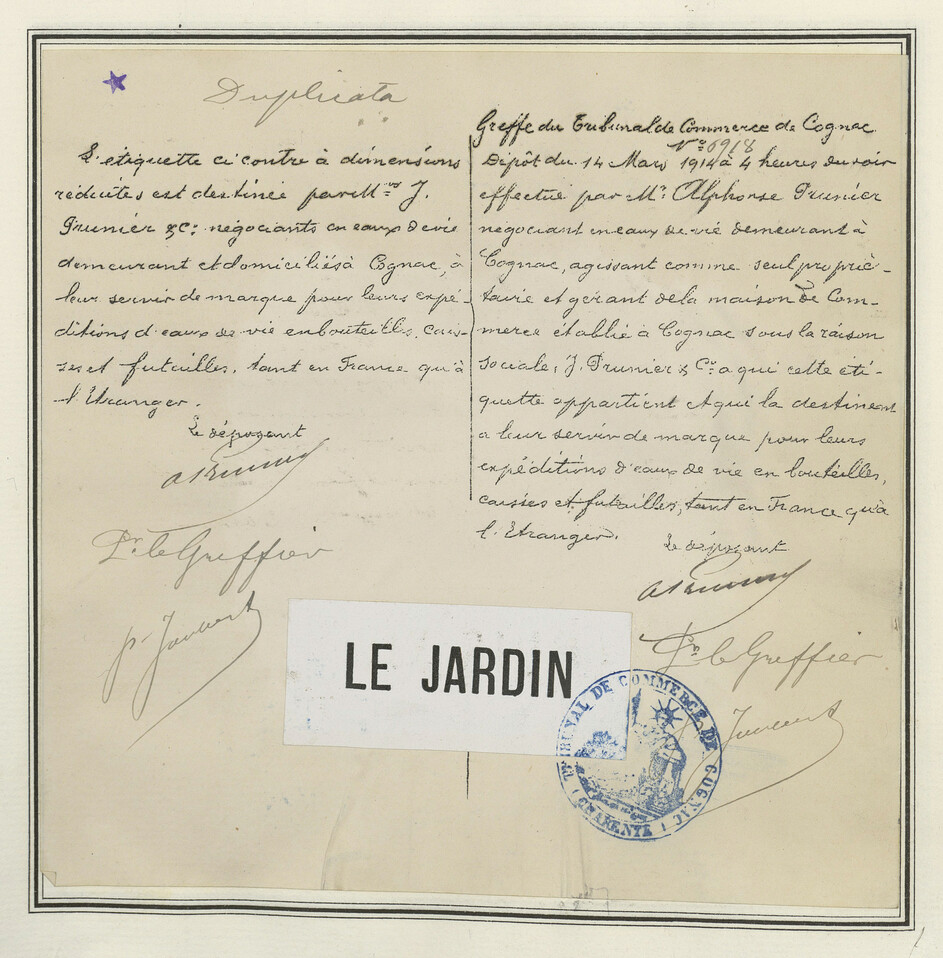 Duplicata
L'étiquette ci contre à dimensions
réduites est destinée par Mrs J.
Prunier & Cie négociants en eaux de vie
demeurant et domiciliés à Cognac, à
leur servir de marque pour leurs expé-
ditions d'eaux de vie en bouteilles, cais-
ses et futailles, tant en France qu'à
l'Etranger.
Le déposant
A Prunier
Pr. le Greffier
Greffe du Tribunal de Commerce de Cognac
No 6918
Dépôt du 14 Mars 1914 à 4 heures du soir
effectué par Mr. Alphonse Prunier
negociant en eaux de vie demeurant à
Cognac, agissant comme seul proprié-
taire et gérant de la maison de Com-
merce établie à Cognac sous la raison
sociale, J. Prunier & Cie a qui cette éti-
quette appartient et qui la destinent
a leur servir de marque pour leurs
expéditions d'eaux de vie en bouteilles,
caisses et futailles, tant en France qu'à
l'Etranger.
Le déposant
A Prunier
Pr. le Greffier
LE JARDIN
TRIBUNAL DE COMMERCE DE COGNAC
(CHARENTE)